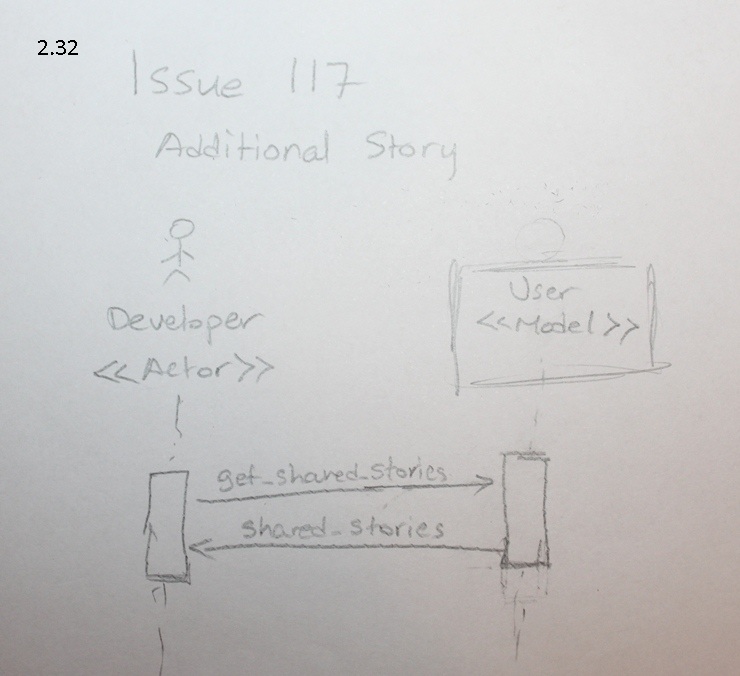 2.32
Issue 117
Additional Story
Developer
<<Actor>>
User
<<Model>>
get_shared_stories
shared_stories